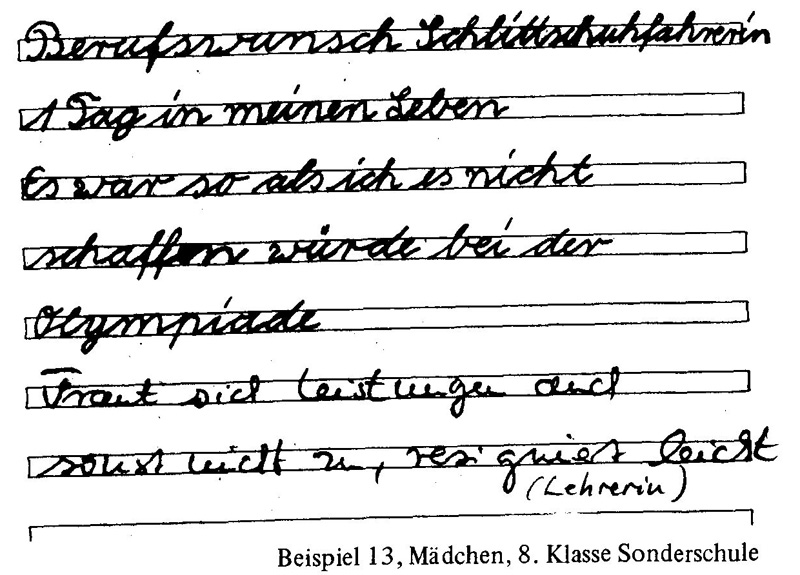 Berufswunsch Schlittschuhfahrerin
1 Tag in meinen Leben
Es war so als ich es nicht
schaffen würde bei der
Olympiade
Traut sich Leistungen auch
sonst nicht zu, resigniert leicht
(Lehrerin)
Beispiel 13, Mädchen, 8. Klasse Sonderschule